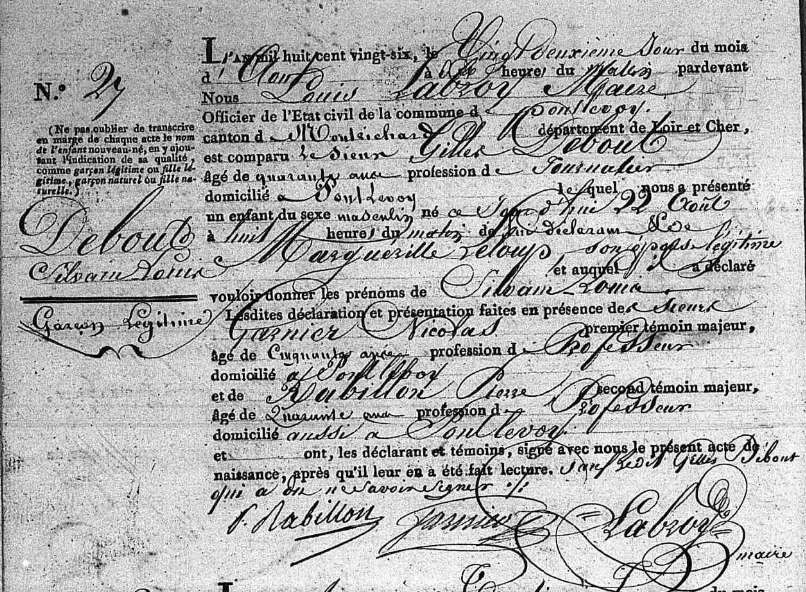 N.° 27
(Ne pas oublier de transcrire
en marge de chaque acte le nom
de l'enfant nouveau-né, en y ajou-
tant l'indication de sa qualité,
comme garçon légitime ou fille lé-
gitime, garçon naturel ou fille na-
turelle.)
Debout
Silvain Louis
Garçon Légitime
L'AN mil huit cent vingt-six, le Vingt deuxieme Jour du mois
d' Aout à heures du Matin pardevant
Nous Louis Labroy Maire
Officier de l'Etat civil de la commune d Pontlevoy.
canton d Montrichard département de Loir et Cher,
est comparu le Sieur Gilles Debout
âgé de quarante ans profession de Journalier
domicilié à Pontlevoy lequel nous a présenté
un enfant du sexe masculin né ce Jourd'hui 22 Aout
à huit heures du matin de lui déclarant & de
Margueritte Leloup son épouse légitime
et auquel il a déclaré
vouloir donner les prénoms de Silvain Louis
Lesdites déclaration et présentation faites en présence des sieurs
Garnier Nicolas premier témoin majeur,
âgé de Cinquante ans profession de Professeur
domicilié à Pontlevoy
et de Rabillon Pierre second témoin majeur,
âgé de Quarante ans profession de Professeur
domicilié aussi à Pontlevoy.
et ont, les déclarant et témoins, signé avec nous le présent acte de
naissance, après qu'il leur en a été fait lecture. Sauf ledit Gilles Debout
qui a dit ne savoir signer
P. Rabillon Garnier Labroy
maire
L
du mois